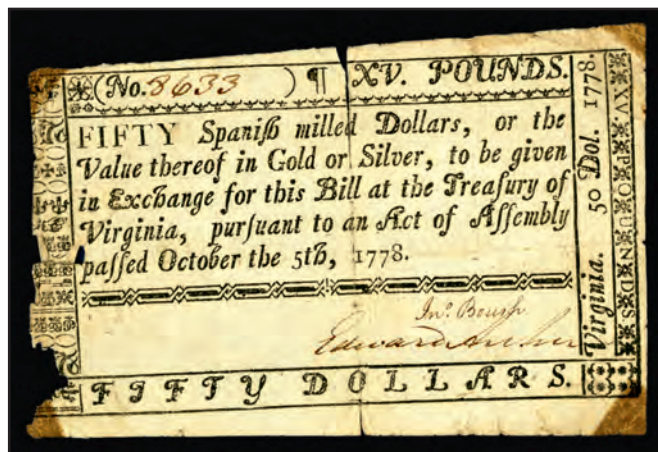 (No. 8633 ) ¶ XV. POUNDS.
FIFTY Spaniſh milled Dollars, or the
Value thereof in Gold or Silver, to be given
in Exchange for this Bill at the Treaſury of
Virginia, purſuant to an Act of Aſſembly
paſſed October the 5th, 1778.
Jnº. Boush
Edward Archer
FIFTY DOLLARS.
Virginia. 50 Dol. 1778.
XV. POUNDS.